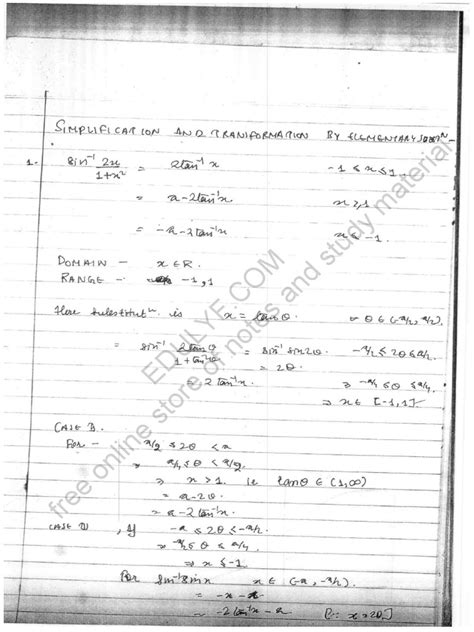 SIMPLIFICATION AND TRANSFORMATION BY ELEMENTARY
1. sin⁻¹ 2x/1+x² = 2tan⁻¹x -1≤x≤1
= π-2tan⁻¹x x≥1
= -π-2tan⁻¹x x≤-1.
DOMAIN - x∈R.
RANGE - -1,1
Here is x = tanθ θ∈(-π/2, π/2).
= sin⁻¹ 2tanθ/1+tan²θ = sin⁻¹ sin2θ. -π/2≤2θ≤π/2.
= 2θ.
= 2tan⁻¹x ⇒ -π/4≤θ≤π/4.
⇒ x∈[-1,1]
CASE
For - π/2≤2θ<π
⇒ π/4≤θ<π/2.
⇒ x>1. ie tanθ∈(1,∞)
= π-2θ.
= π-2tan⁻¹x.
CASE , If -π≤2θ≤-π/2.
⇒ x≤-1.
For sin⁻¹sinx x∈(-π, -π/2).
= -x-π
= -2tan⁻¹x-π
EDULYE.COM
free online store of notes and study material